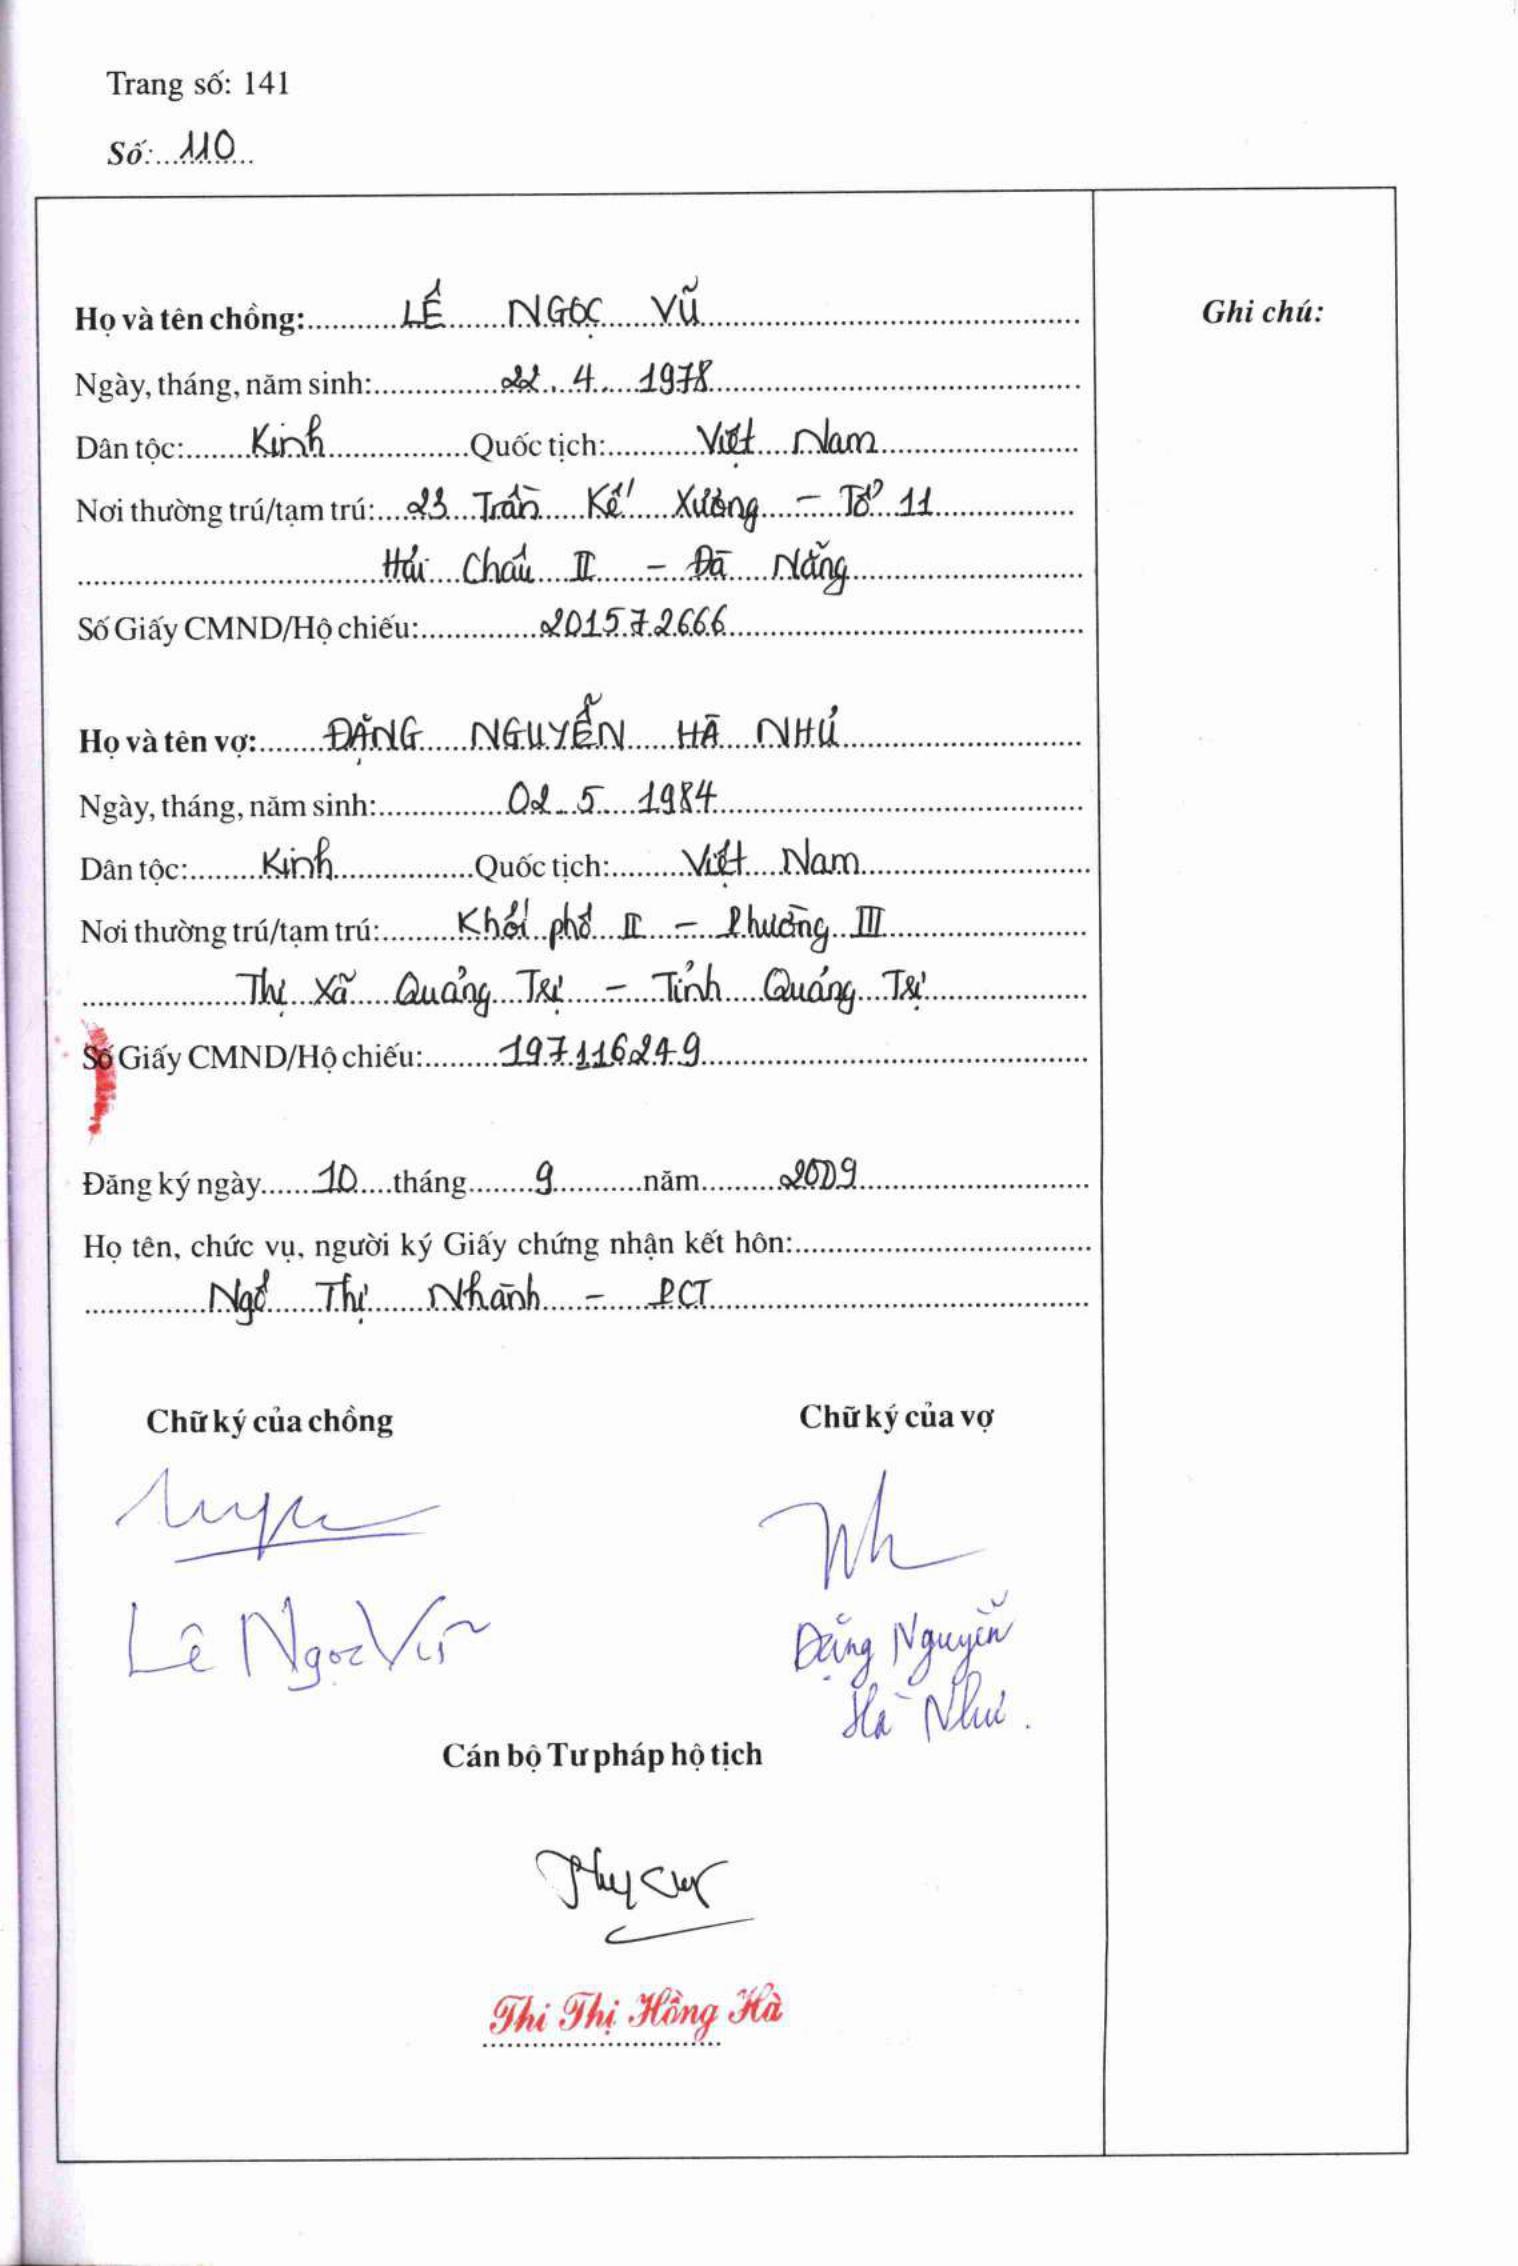 Trang số: 141
Số: 110
Họ và tên chồng: LÊ NGỌC VŨ
Ghi chú:
Ngày, tháng, năm sinh: 22. 4. 1978
Dân tộc: Kinh Quốc tịch: Việt Nam
Nơi thường trú/tạm trú: 23 Trần Kế Xương - Tổ 11
Hải Châu II - Đà Nẵng
Số Giấy CMND/Hộ chiếu: 201572666
Họ và tên vợ: ĐẶNG NGUYỄN HÀ NHƯ
Ngày, tháng, năm sinh: 02. 5 1984
Dân tộc: Kinh Quốc tịch: Việt Nam
Nơi thường trú/tạm trú: Khối phố II - Phường III
Thị Xã Quảng Trị - Tỉnh Quảng Trị
Số Giấy CMND/Hộ chiếu: 197116249
Đăng ký ngày 10 tháng 9 năm 2009
Họ tên, chức vụ, người ký Giấy chứng nhận kết hôn:
Ngô Thị Nhành - PCT
Chữ ký của chồng Chữ ký của vợ
Lê Ngọc Vũ
Đặng Nguyễn
Hà Như.
Cán bộ Tư pháp hộ tịch
Thi Thị Hồng Hà